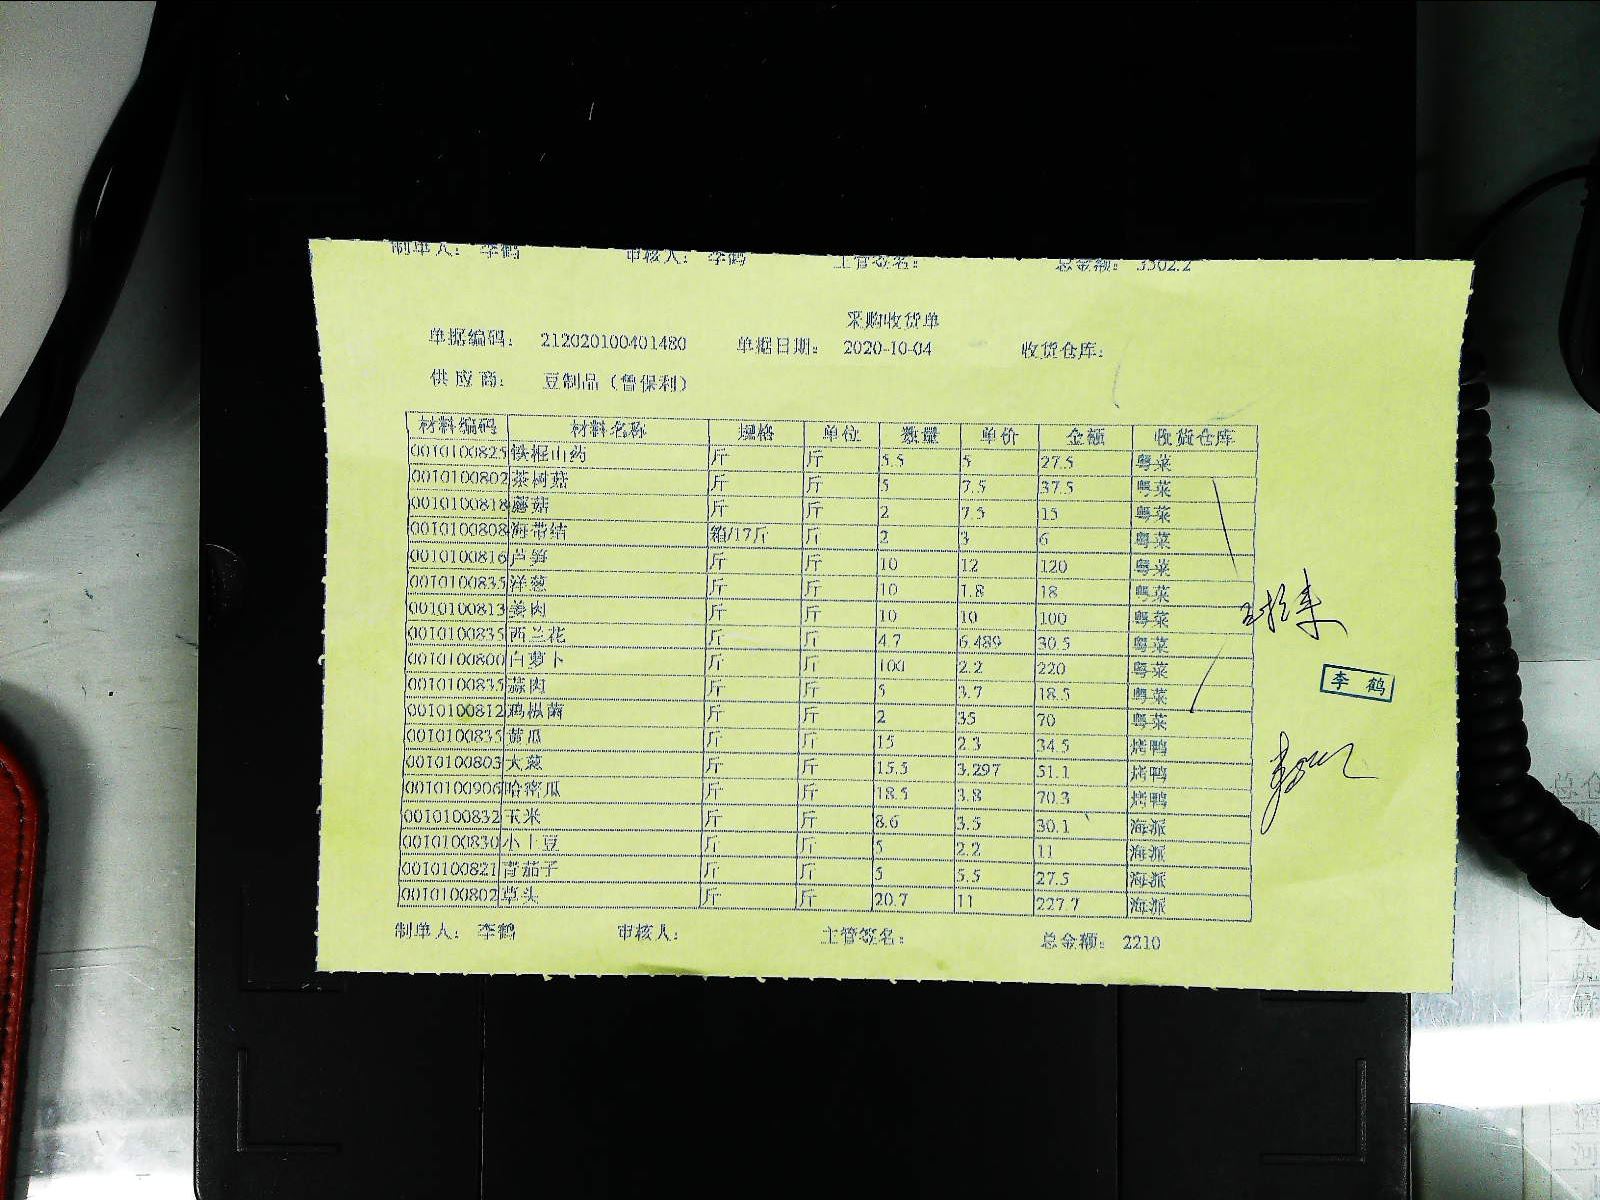 制单人： 李鹤 审核人： 李鹤 主管签名： 总金额： 3302.2
采购收货单
单据编码： 212020100401480 单据日期： 2020-10-04 收货仓库：
供应商： 豆制品（曾保利）
材料编码 材料名称 规格 单位 数量 单价 金额 收货仓库
0010100825 铁棍山药 斤 斤 5.5 5 27.5 粤菜
0010100802 茶树菇 斤 斤 5 7.5 37.5 粤菜
0010100818 蘑菇 斤 斤 2 7.5 15 粤菜
0010100808 海带结 箱/17斤 斤 2 3 6 粤菜
0010100816 芦笋 斤 斤 10 12 120 粤菜
0010100835 洋葱 斤 斤 10 1.8 18 粤菜
0010100813 姜肉 斤 斤 10 10 100 粤菜
0010100835 西兰花 斤 斤 4.7 6.489 30.5 粤菜
0010100800 白萝卜 斤 斤 100 2.2 220 粤菜
0010100835 蒜肉 斤 斤 5 3.7 18.5 粤菜
0010100812 鸡枞菌 斤 斤 2 35 70 粤菜
0010100835 黄瓜 斤 斤 15 2.3 34.5 烤鸭
0010100803 大葱 斤 斤 15.5 3.297 51.1 烤鸭
0010100906 哈密瓜 斤 斤 18.5 3.8 70.3 烤鸭
0010100832 玉米 斤 斤 8.6 3.5 30.1 海派
0010100830 小土豆 斤 斤 5 2.2 11 海派
0010100821 青茄子 斤 斤 5 5.5 27.5 海派
0010100802 草头 斤 斤 20.7 11 227.7 海派
李鹤
制单人： 李鹤 审核人： 主管签名： 总金额： 2210